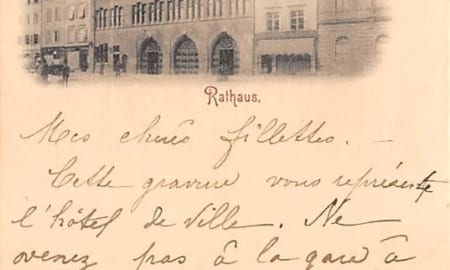 Rathaus.
Mes chères fillettes. —
Cette gravure vous représente
l'hôtel de Ville. Ne
venez pas à la gare à